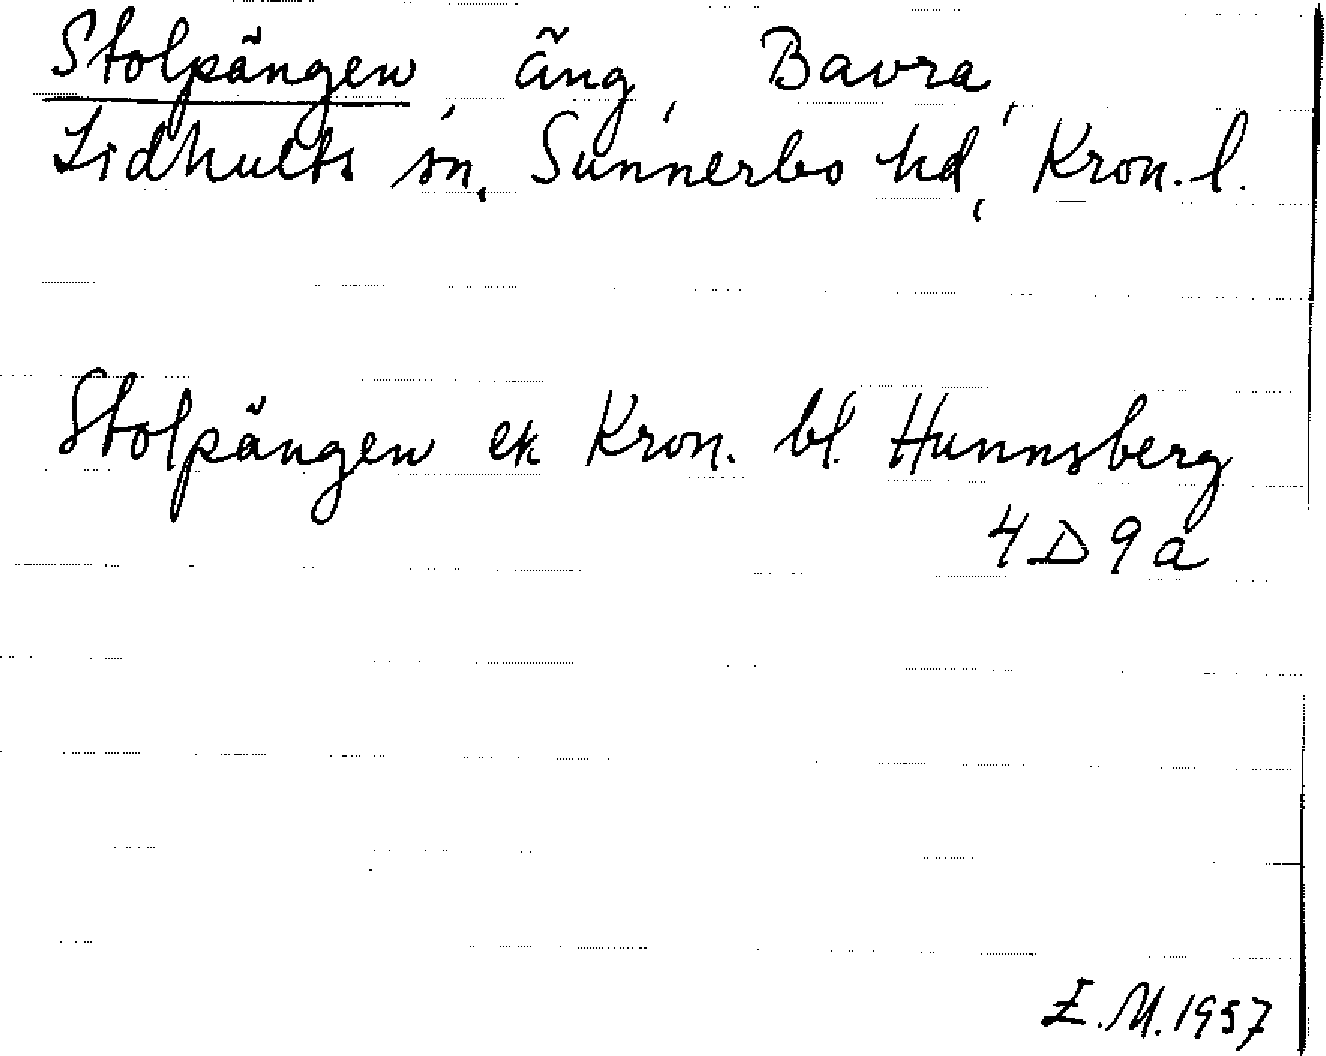 Stolpängen, äng, Bavra,
Lidhults sn, Sunnerbo hd, Kron. l.
Stolpängen ek Kron. bl. Hunnsberg
4 D 9 a
E. M. 1957